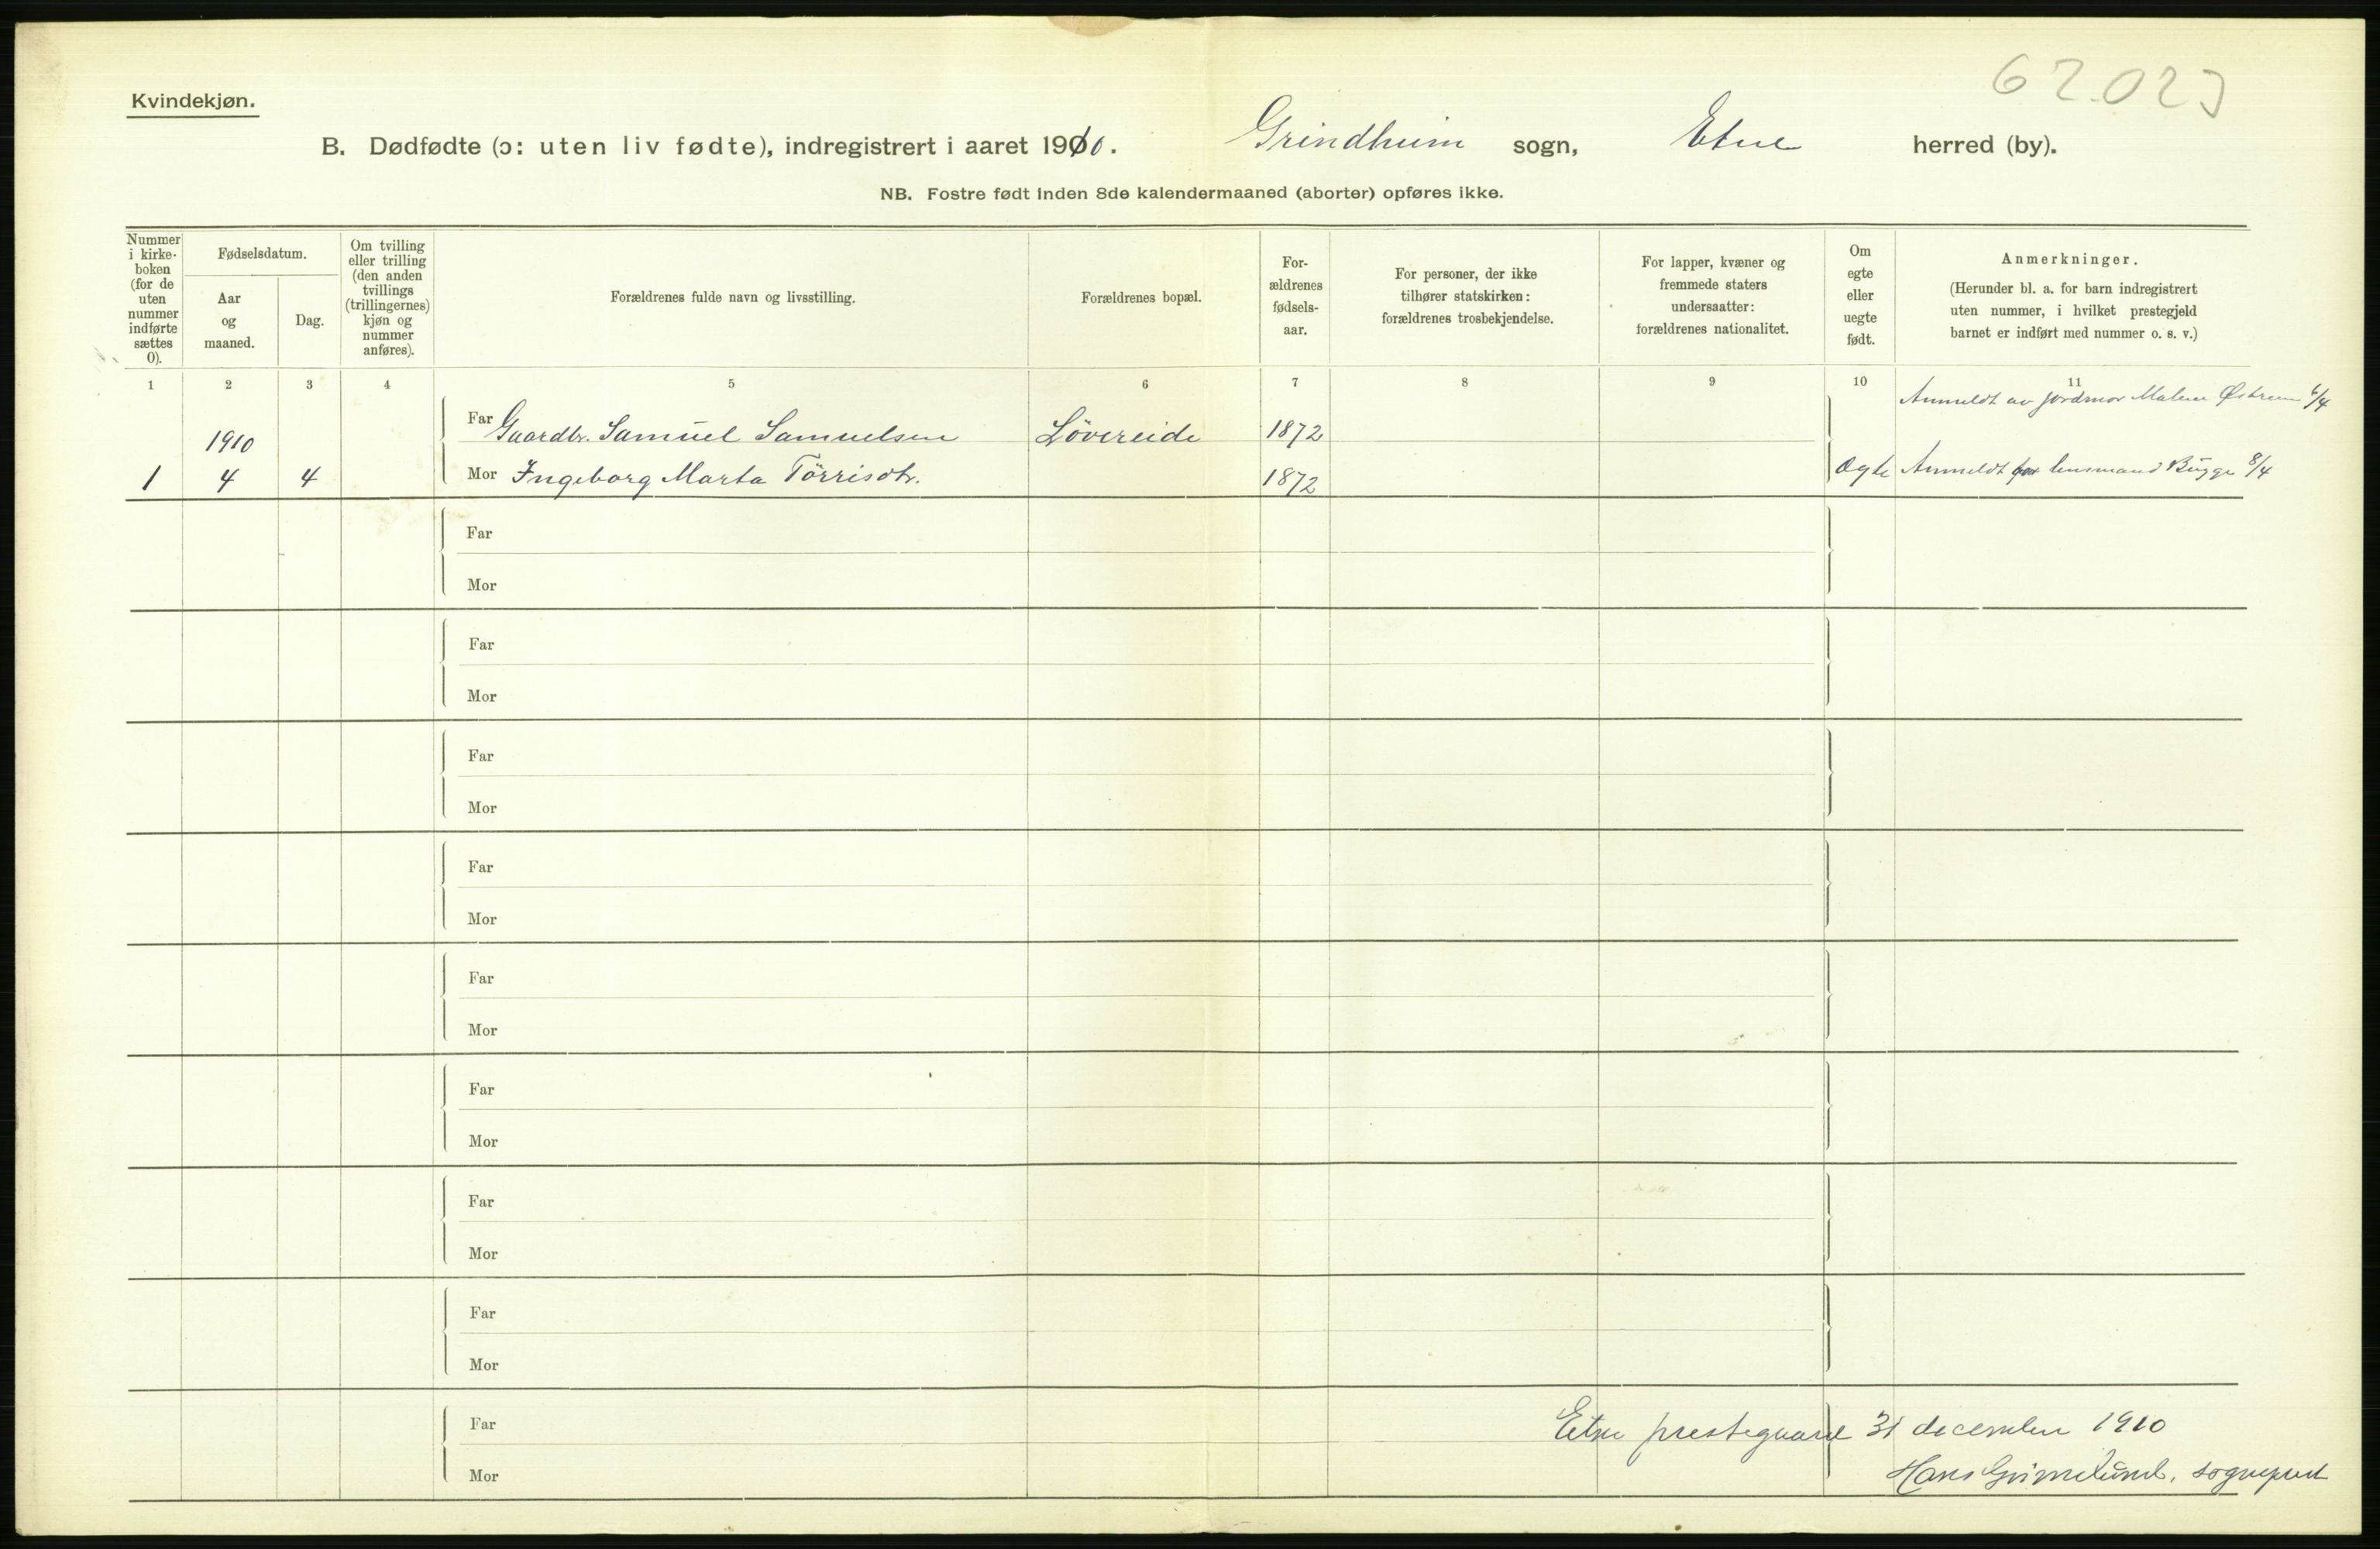 62.023
Kvindekjøn.
B. Dødfødte (ɔ: uten liv fødte), indregistrert i aaret 1910. Grindheim sogn, Etne herred (by).
NB. Fostre født inden 8de kalendermaaned (aborter) opføres ikke.
Nummer i kirke-boken (for de uten nummer indførte sættes 0).
Fødselsdatum.
Aar og maaned.
Dag.
Om tvilling eller trilling (den anden tvillings (trillingernes) kjøn og nummer anføres).
Forældrenes fulde navn og livsstilling.
Forældrenes bopæl.
For-ældrenes fødsels-aar.
For personer, der ikke tilhører statskirken: forældrenes trosbekjendelse.
For lapper, kvæner og fremmede staters undersaatter: forældrenes nationalitet.
Om egte eller uegte født.
Anmerkninger.
(Herunder bl. a. for barn indregistrert uten nummer, i hvilket prestegjeld barnet er indført med nummer o. s. v.)
1 2 3 4 5 6 7 8 9 10 11
Anmeldt av jordmor Malene Østrem 6/4
1910 Far Gaardbr. Samuel Samuelsen Lövereide 1872
1 4 4 Mor Ingeborg Marta Törrisdtr. 1872 Ægte Anmeldt lensmand Bugge 8/4
Far
Mor
Far
Mor
Far
Mor
Far
Mor
Far
Mor
Far
Mor
Far
Mor
Far
Mor
Far Etne prestegaard 31 december 1910
Mor Hans Grimelund, sogneprest